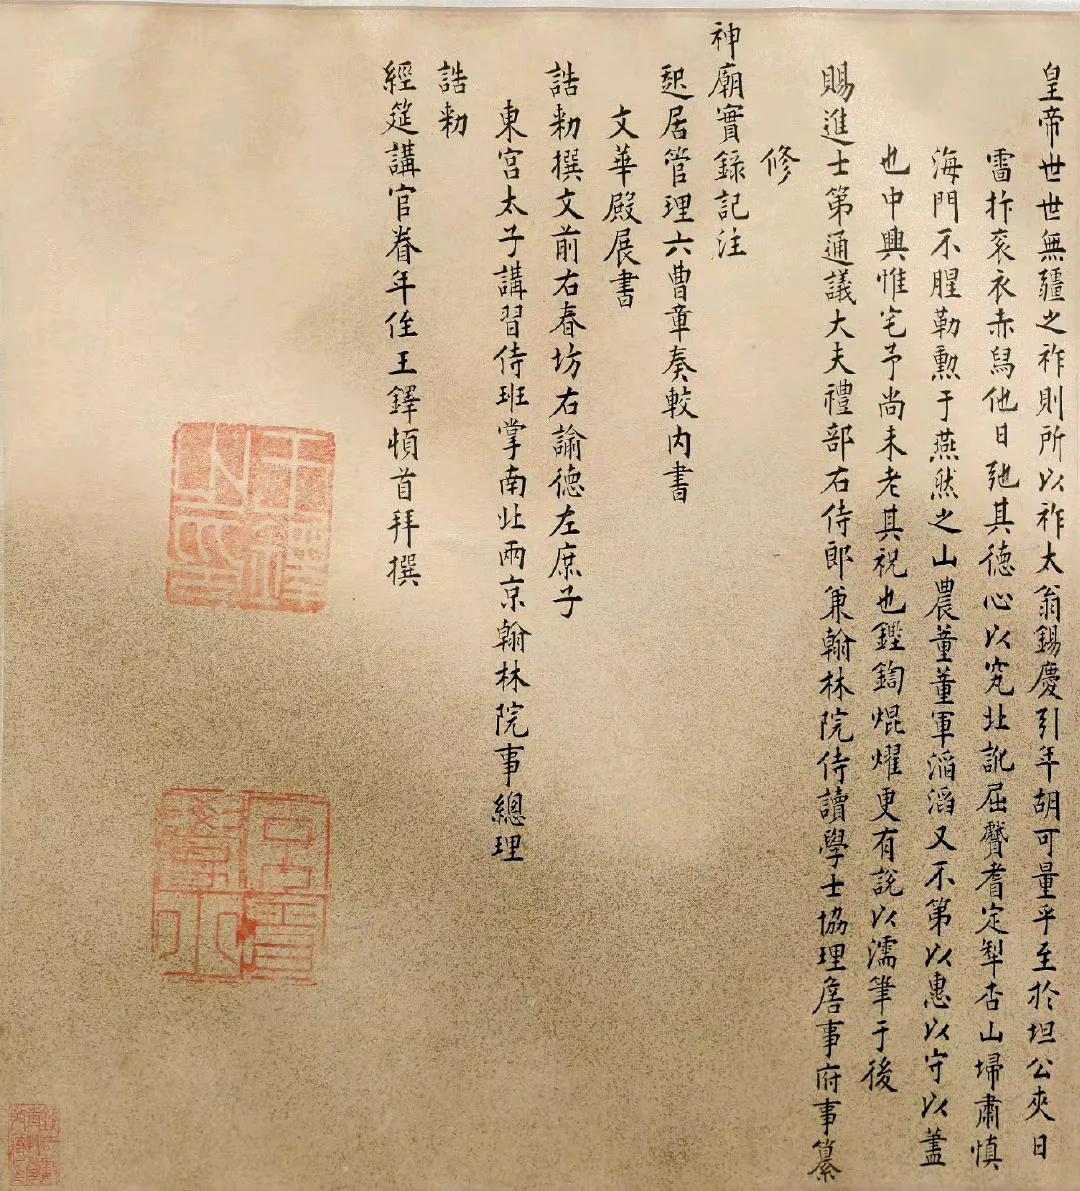 皇帝世世無疆之祚則所以祚太翁錫慶引年胡可量乎至於坦公夾日
雷抃衮衣赤舄他日虓其德心以究北訛屈賮耆定犁杏山埽肅慎
海門不腥勒勲于燕然之山農董董軍滔滔又不第以惠以守以藎
也中興惟宅予尚未老其祝也鏗鍧焜燿更有説以濡筆于後
賜進士第通議大夫禮部右侍郎兼翰林院侍讀學士協理詹事府事纂
修
神廟實錄記注
起居管理六曹章奏較内書
文華殿展書
誥勅撰文前右春坊右諭德左庶子
東宮太子講習侍班掌南北兩京翰林院事總理
誥勅
經筵講官眷年侄王鐸頓首拜撰
王鐸之印